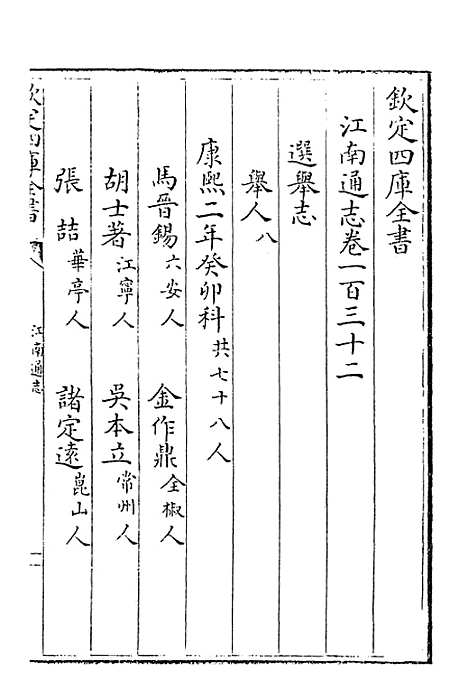 欽定四庫全書
江南通志卷一百三十二
選舉志
舉人八
康熙二年癸卯科共七十八人
馬晉錫六安人 金作鼎全椒人
胡士著江寧人 吳本立常州人
張喆華亭人 諸定遠崑山人
欽定四庫全書 江南通志 一